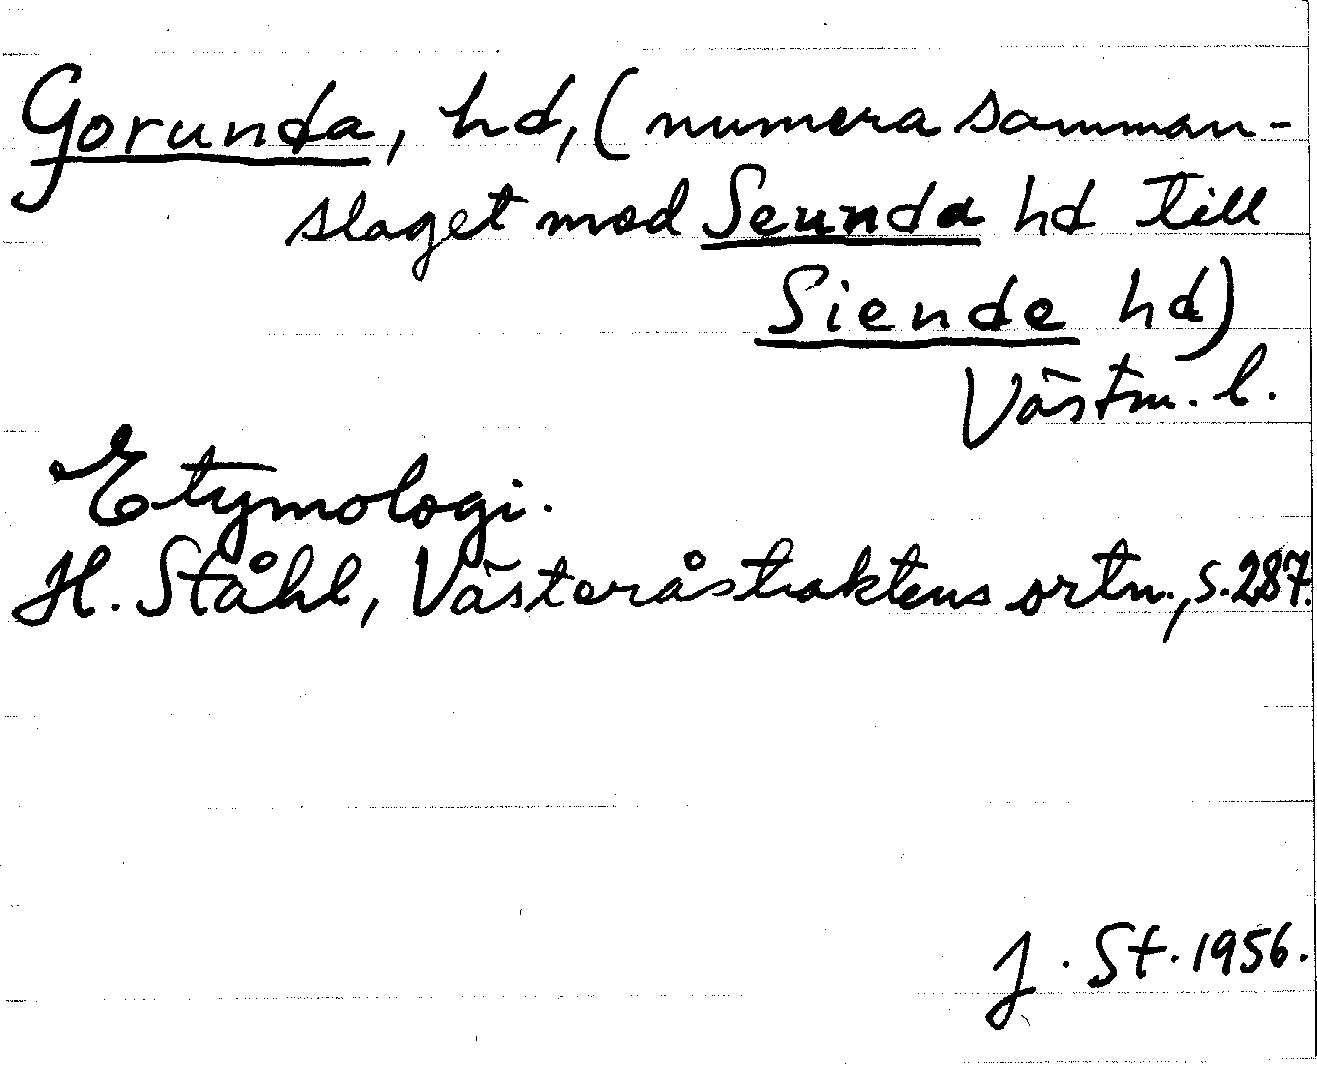 Gorunda, hd, (numera samman-
slaget med Seunda hd till
Siende hd)
Västm. l.
Etymologi.
H. Ståhl, Västeråstraktens ortn., s. 287.
J. St. 1956.